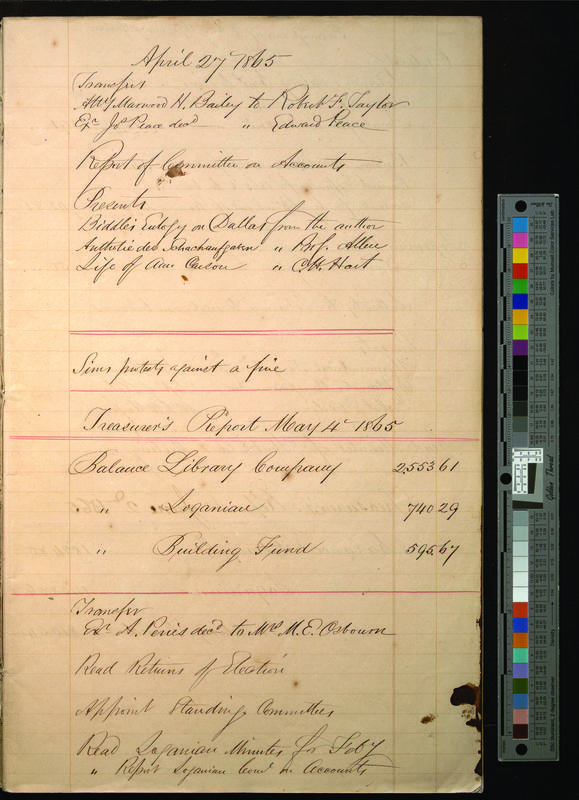 April 27 1865
Transfers
Atty Marwood H. Bailey to Robert F. Taylor
Exr Jos Peace decd " Edward Peace
Report of Committee on Accounts
Presents
Biddle's Eulogy on Dallas from the author
des " Prof. Allen
Life of Ann Carson " C.H. Hart
Sims protests against a fine
Treasurer's Report May 4 1865
Balance Library Company 2553 61
" Loganian 740 29
" Building Fund 595 67
Transfer
Exr A. decd to Mrs M. E. Osbourn
Read Returns of Election
Appoint Standing Committees
Read Loganian Minutes for Feby
" Report Loganian Com on Accounts